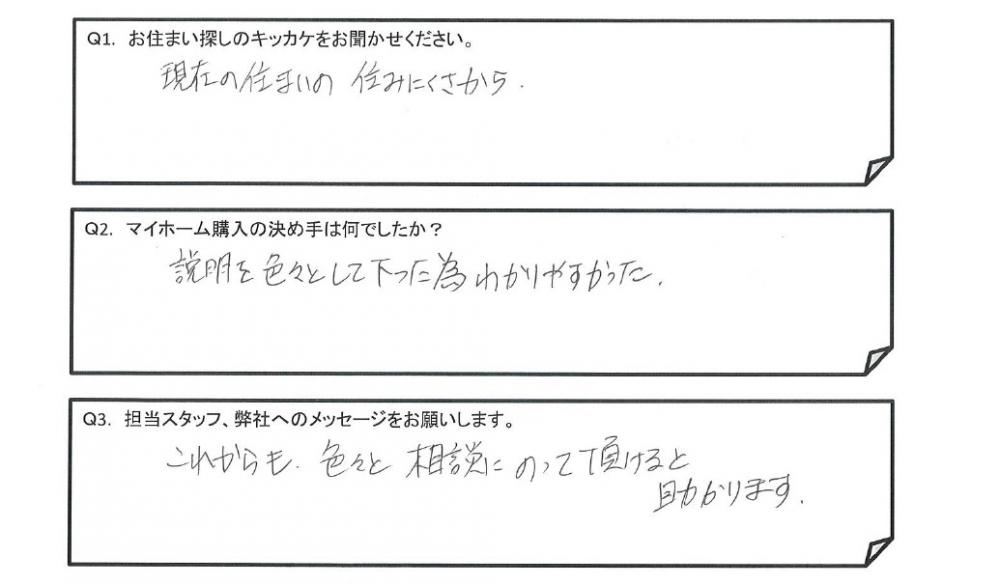 Q1. お住まい探しのキッカケをお聞かせください。
現在の住まいの 住みにくさから.
Q2. マイホーム購入の決め手は何でしたか？
説明を色々として下った為わかりやすかった.
Q3. 担当スタッフ、弊社へのメッセージをお願いします。
これからも. 色々と 相談にのって頂けると
助かります.